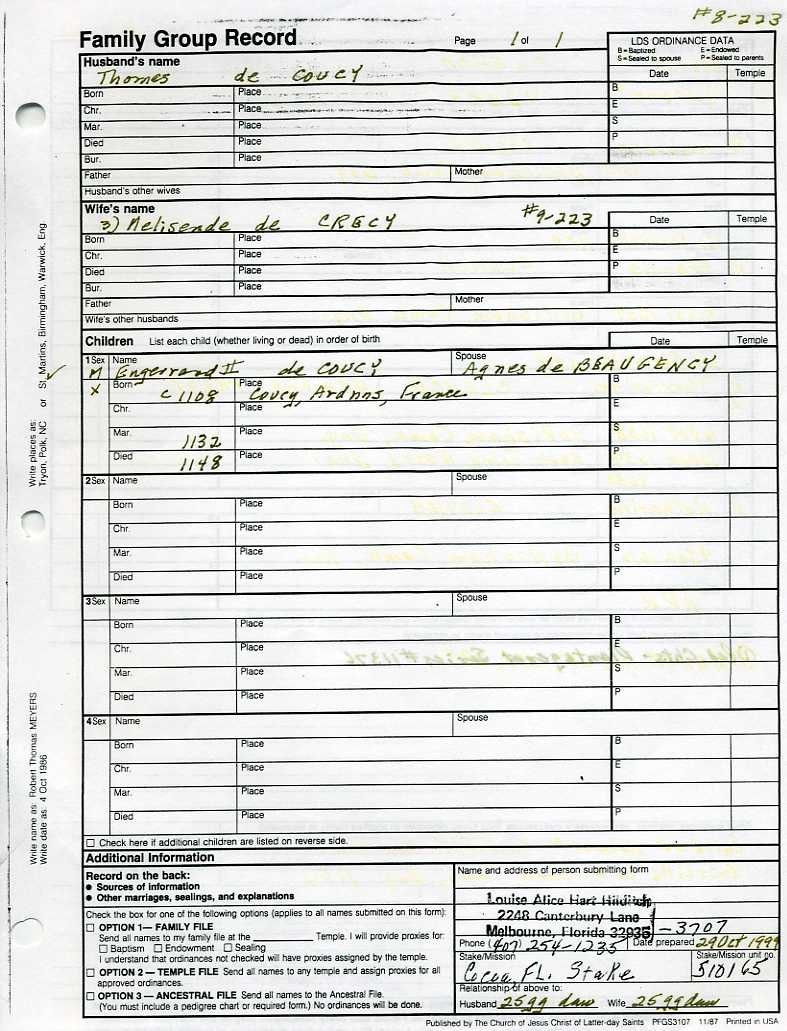 #8-223
Family Group Record
Page 1 of 1
LDS ORDINANCE DATA
B = Baptized E = Endowed
S = Sealed to spouse P = Sealed to parents
Husband's name
Thomes de COUCY
Date Temple
Born Place B
Chr. Place E
Mar. Place S
Died Place P
Bur. Place
Father Mother
Husband's other wives
Wife's name
3) Melisende de CRECY #9-223
Date Temple
Born Place B
Chr. Place E
Died Place P
Bur. Place
Father Mother
Wife's other husbands
Children List each child (whether living or dead) in order of birth
Date Temple
1 Sex Name Spouse
M Engerrand II de COUCY Agnes de BEAUGENCY
X Born c 1108 Place Coucy, Ardnns, France B
Chr. Place E
Mar. 1132 Place S
Died 1148 Place P
2 Sex Name Spouse
Born Place B
Chr. Place E
Mar. Place S
Died Place P
3 Sex Name Spouse
Born Place B
Chr. Place E
Mar. Place S
Died Place P
4 Sex Name Spouse
Born Place B
Chr. Place E
Mar. Place S
Died Place P
Check here if additional children are listed on reverse side.
Additional Information
Record on the back:
• Sources of information
• Other marriages, sealings, and explanations
Check the box for one of the following options (applies to all names submitted on this form):
OPTION 1— FAMILY FILE
Send all names to my family file at the Temple. I will provide proxies for:
Baptism Endowment Sealing
I understand that ordinances not checked will have proxies assigned by the temple.
OPTION 2 — TEMPLE FILE Send all names to any temple and assign proxies for all
approved ordinances.
OPTION 3 — ANCESTRAL FILE Send all names to the Ancestral File.
(You must include a pedigree chart or required form.) No ordinances will be done.
Name and address of person submitting form
Louise Alice Hart
2248 Canterbury Lane
Melbourne, Florida 32935 -3707
Phone (407) 254-1235 Date prepared 29 Oct 1999
Stake/Mission Stake/Mission unit no.
Cocoa, FL. Stake 510165
Relationship of above to:
Husband 25 gg dau Wife 25 gg dau
Published by The Church of Jesus Christ of Latter-day Saints PFGS3107 11/87 Printed in USA
Write places as: Tryon, Polk, NC or St. Martins, Birmingham, Warwick, Eng.
Write name as: Robert Thomas MEYERS
Write date as: 4 Oct 1986